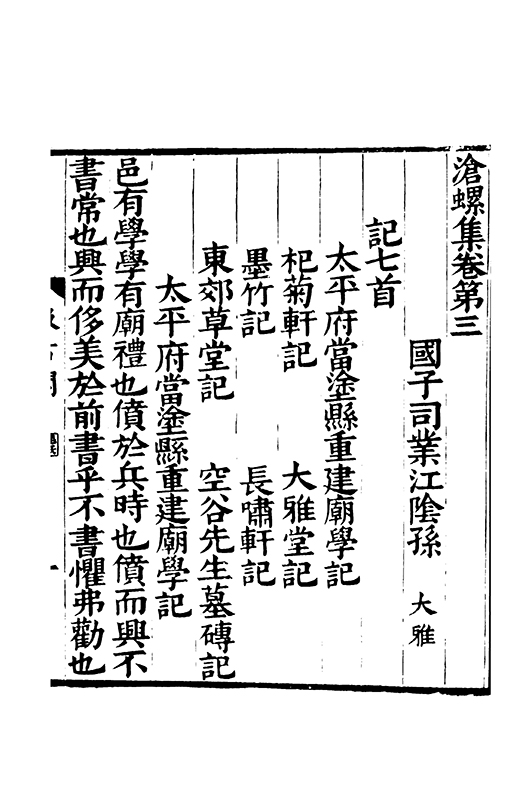 滄螺集卷第三
國子司業江陰孫 大雅
記七首
太平府當塗縣重建廟學記
杞菊軒記 大雅堂記
墨竹記 長嘯軒記
東郊草堂記 空谷先生墓磚記
太平府當塗縣重建廟學記
邑有學學有廟禮也僨於兵時也僨而興不
書常也興而侈美於前書乎不書懼弗勸也